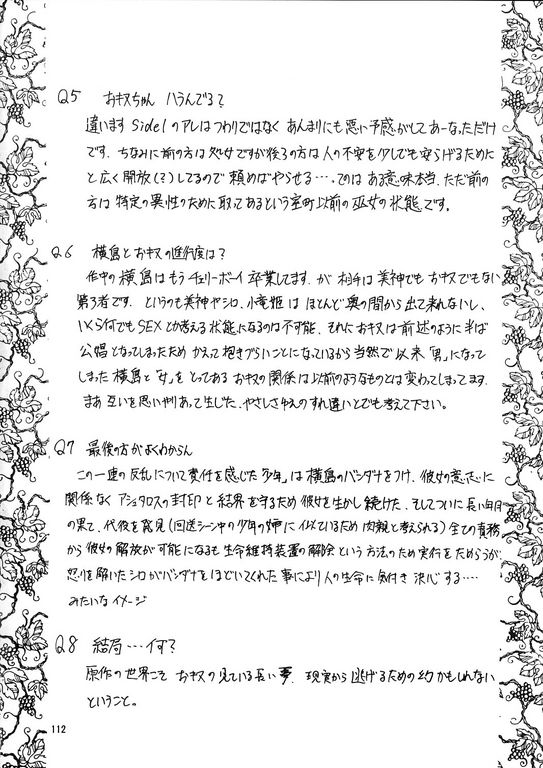 Q5 おキヌちゃん ハラんでる?
違います Side1のアレはつわりではなく あんまりにも悪い予感がしてあーなっただけ
です。ちなみに前の方は処女ですが後ろの方は人の不安を少しでも安らげるために
と広く開放(?)してるので 頼めばやらせる…、のはある意味本当、ただ前の
方は特定の異性のために取ってあるという室町以前の巫女の状態です。
Q6 横島とおキヌの進行度は?
作中の横島はもうチェリーボーイ卒業してます、が 相手は美神でもおキヌでもない
第3者です。というのも美神やシロ、小竜姫はほとんど奥の間から出て来れないし、
いくら何でもSEXとか考える状態になるのは不可能、それにおキヌは前述のように半ば
公娼となってしまったため かえって抱きづらいことになっているから当然で以来「男」になって
しまった横島と「女」をとってある おキヌの関係は以前のようなものとは変わってしまってます。
まあ互いを思いやって生じた、やさしさゆえのすれ違いとでも考えて下さい。
Q7 最後の方がよくわからん
この一連の反乱について責任を感じた「少年」は横島のバンダナをつけ、彼女の意志に
関係なくアシュタロスの封印と結界を守るため彼女を生かし続けた、そしてついに長い年月
の果て、代役を発見(回送シーン中の少年の姉に似ているため肉親と考えられる)全ての責務
から彼女の解放が可能になるも生命維持装置の解除という方法のため実行をためらうが、
怒りを解いたシロがバンダナをほどいてくれた事により人の生命に気付き決心する….
みたいなイメージ
Q8 結局…何?
原作の世界こそ おキヌの見ている長い夢、現実から逃げるためのものかもしれない
ということ。
112